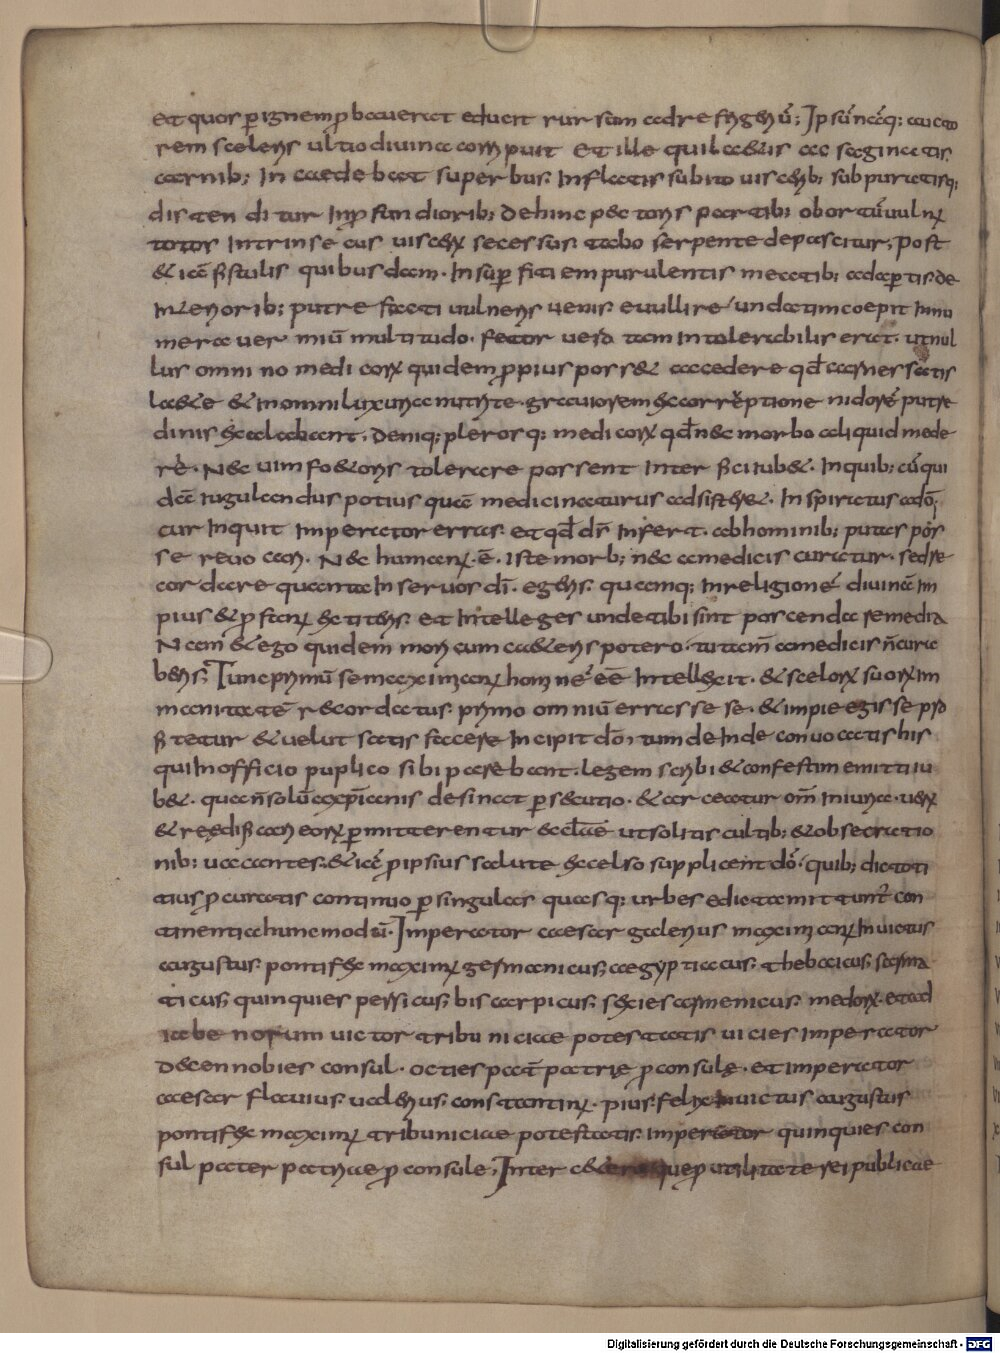 et quos p ignem pbauerat eduxit rursum ad refrigeriū; Ipsū nāq; aucto
rem sceleris ultio diuina corripuit Et ille qui lactis ac saginatis
carnib; In caede beat superbus. Inflatis subito uiscerib; suppuratisq;
distenditur Inpfundiorib; dehinc pectoris partib; obortū uulnꝰ
totos Intrinsecus uiscerꝝ secessus tabo serpente depascitur, post
& iā fistulis quibusdam. Insup fitiem purulentis meatib; adaptis. de
Interiorib; putrefacti uulneris uenis euullire undatim coepit Innu
mera uermiū multitudo. Fetor uero tam Intolerabilis erat. ut nul
lus omnino medicorꝝ quidem ppius poss& accedere qđ carnes satis
laetae & In omni luxuria nutrite. grauiorem ex corrūptione nidorē putre
dinis exalabant. Deniq; plerosq; medicorꝝ qđ nec morbo aliquid mede
re. Nec uim foetoris tolerare possent Interfici iub&. In quib; cū qui
dā iugulandus potius quā medicinaturus adsister&. Inspiratus a dō.
cur Inquit Imperator erras. et qđ dš Infert. ab hominib; putas pos
se reuocari. Nec humanꝰ ē. iste morb; nec a medicis curatur. sed re
cordare quanta In seruos dī. egeris. quamq; In religionē diuinā Im
pius & pfanꝰ extiteris. et Intelleges unde tibi sint poscenda remedia
Nam & ego quidem mori cum ceteris potero. tu tam̄ a medicis ñ cura
beris; Tunc primū se maximianꝰ hominē eē Intellexit. & scelerꝝ suorꝝ Im
manitatē recordatus. primo omniū errasse se. & impie egisse pro
fitetur & uelut satis facere Incipit dō, tum deInde conuocatis his
qui In officio puplico sibi parebant. legem scribi & confestim emitti iu
b&. qua ñ solū a xpianis desinat psecutio. & arceatur om̄ Iniuria. uerꝝ
& reedificari eorꝝ pmitterentur ecclae ut solitis cultib; & obsecratio
nib; uacantes. & iā p ipsius salute excelso supplicent dō. quib; dictoti
tius pcuratis continuo p singulas quasq; urbes edicta mittuntur con
tinentia hunc modū. Imperator caesar galerius maximianꝰ Inuictus
augustus. pontifex maximꝰ germanicus, aegyptiacus. thebaicus, sarma
ticus, quinquies persicus, bis carpicus. sexies armenicus. medorꝝ. et ad
iabenorum uictor tribuniciae potestatis uicies Imperator
decennobies consul. octies pat̄ patriae pconsule. et imperator
caesar flauius. ualerius. constantinꝰ. pius. felix Inuictus augustus
pontifex maximꝰ tribuniciae potestatis. imperator quinquies con
sul pater patriae pconsule; Inter cetera que p utilitate rei publicae
Digitalisierung gefördert durch die Deutsche Forschungsgemeinschaft - DFG